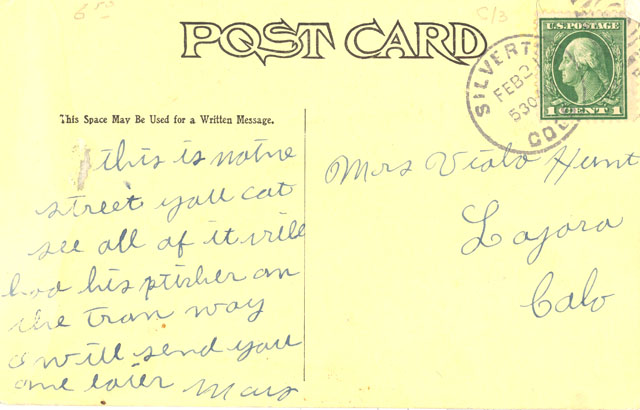 6 50
C/3
POST CARD
U.S. POSTAGE
1 CENT 1
SILVERTO
FEB 21
530A
COLO
This Space May Be Used for a Written Message.
this is notne
street yall cat
see all of it will
had his pticher on
the tran way
will send you
one later Mary
Mrs Viola Hunt
Lajara
Colo